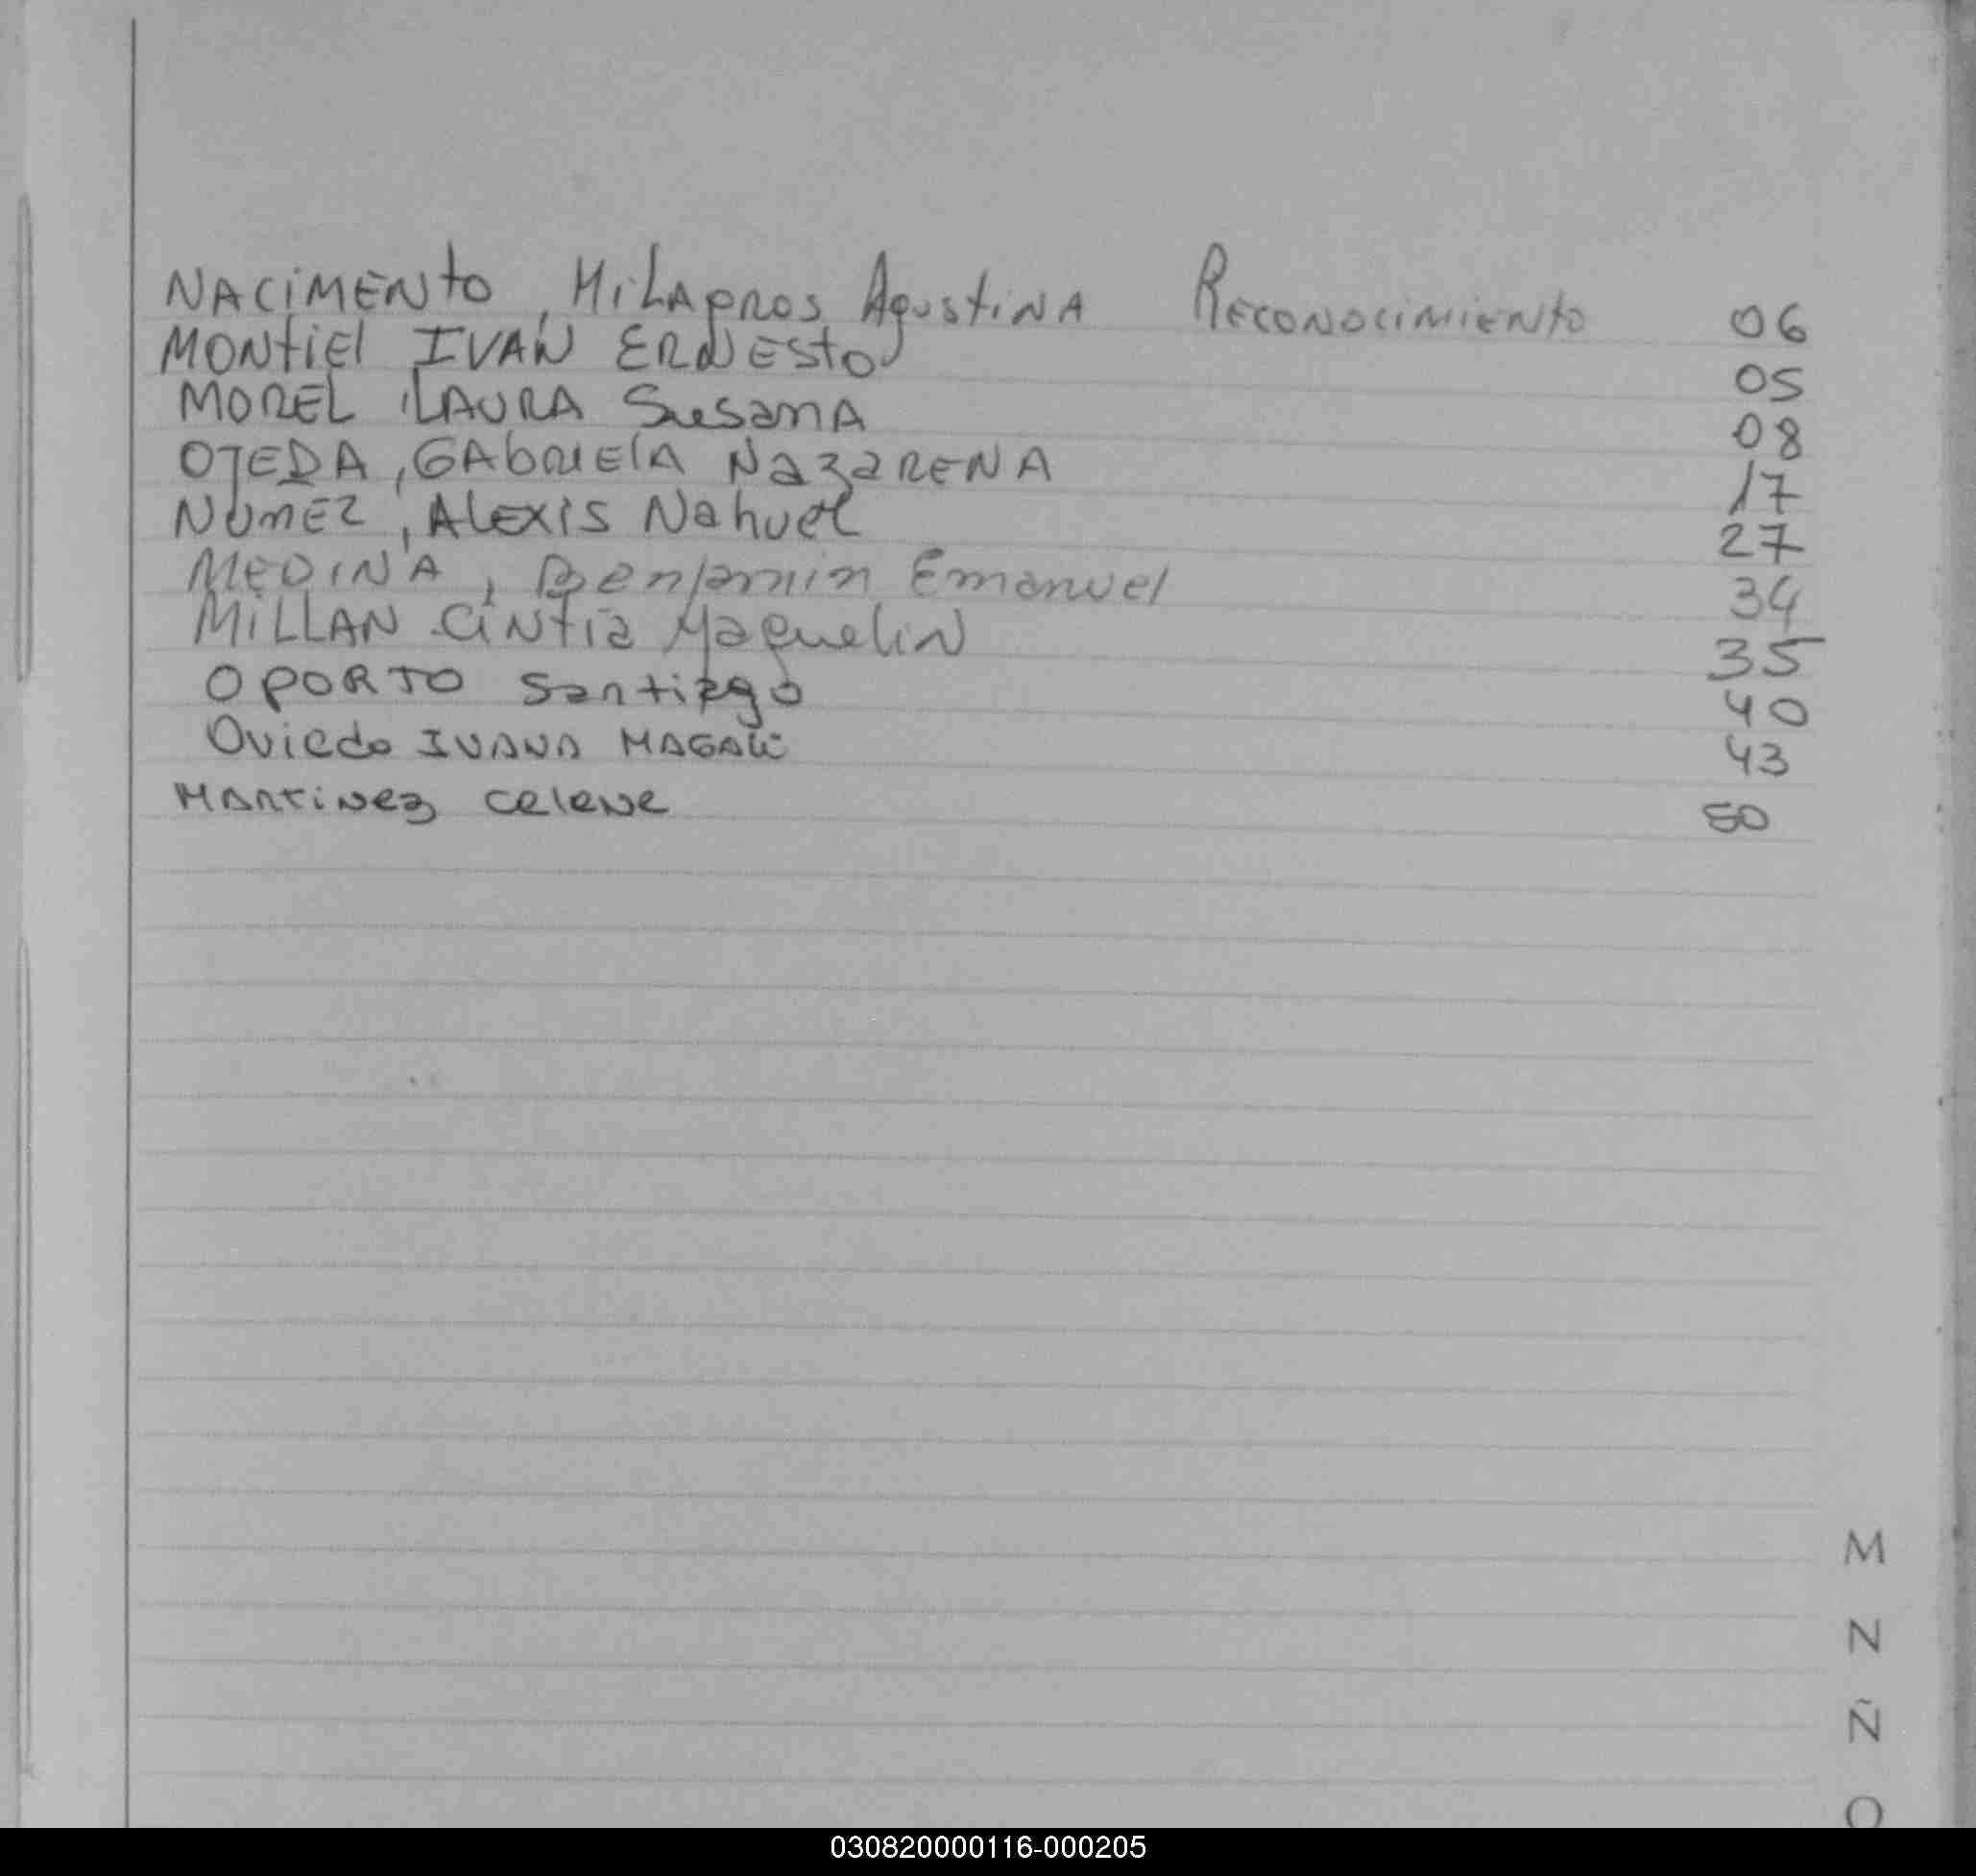 NACiMENto, MiLAgros AgustiNA Reconocimiento 06
MONtiEl IVAN ERNEsto 05
MOREL LAURA SusanA 08
OJEDA, GAbriElA NazaRENA 17
NUñEZ, Alexis Nahuel 27
MEDINA, Benjamin Emanuel 34
MiLLAN Cintia Yaquelin 35
OPORTO Santiago 40
Oviedo IVANA MAGALi 43
MARtiNez CeleNe 50
M
N
Ñ
O
030820000116-000205